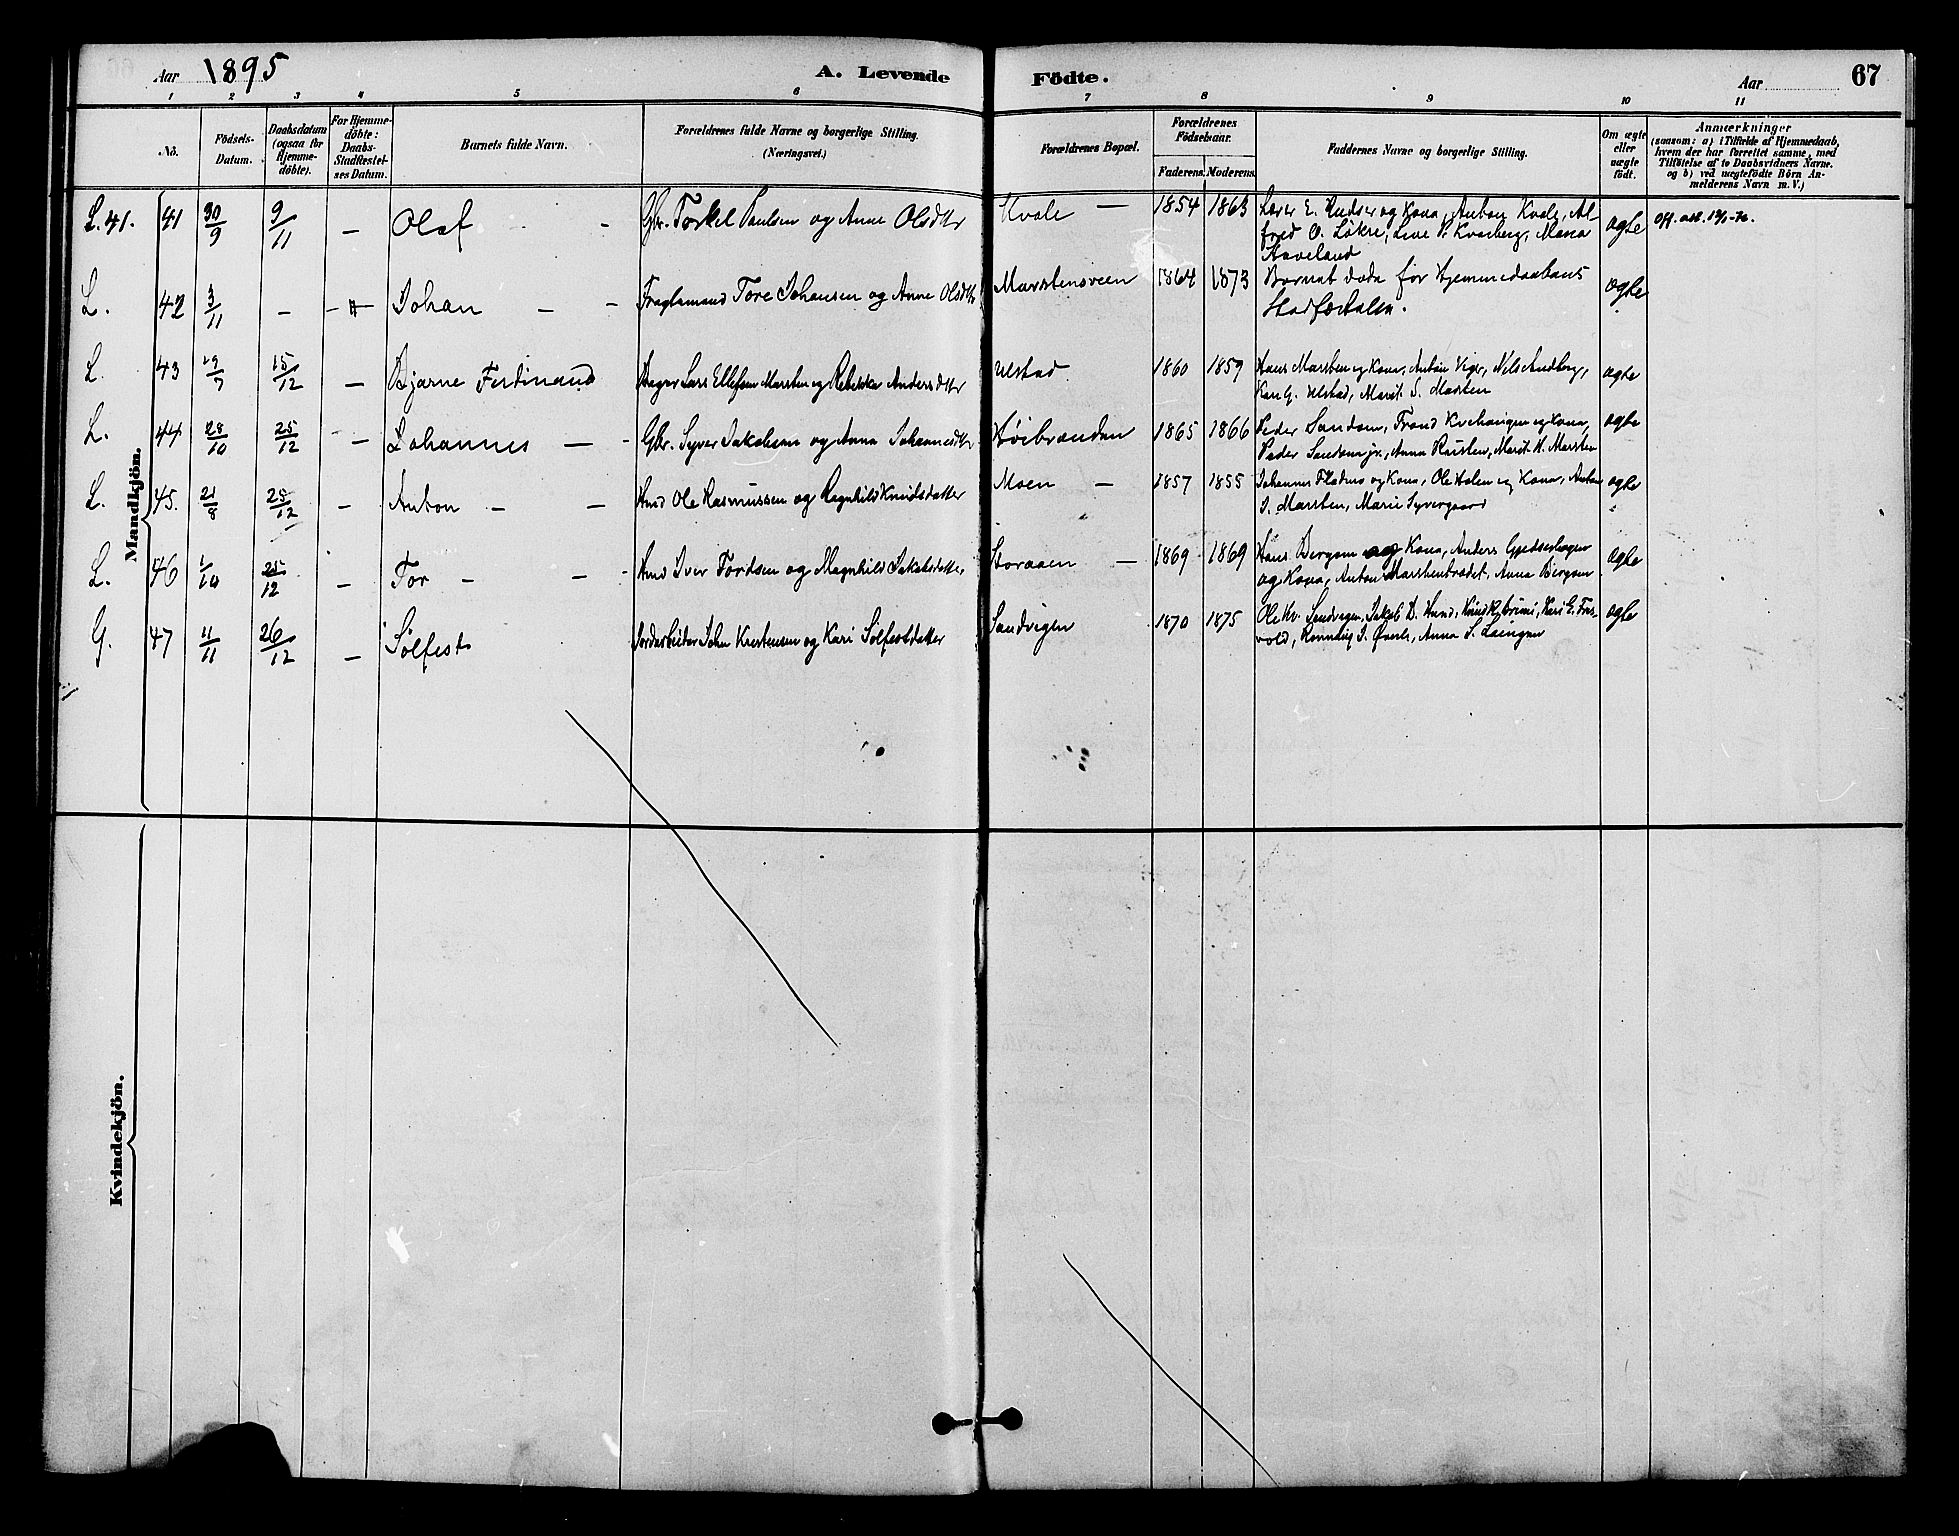 Aar 1895
A. Levende Födte.
Aar
67
1 2 3 4 5 6 7 8 9 10 11
No.
Födsels-
Datum.
Daabsdatum
(ogsaa for
Hjemme-
döbte).
For Hjemme-
döbte:
Daabs-
Stadfæstel-
ses Datum.
Barnets fulde Navn.
Forældrenes fulde Navne og borgerlige Stilling.
(Næringsvei.)
Forældrenes Bopæl.
Forældrenes
Födselsaar.
Faderens. Moderens.
Faddernes Navne og borgerlige Stilling.
Om ægte
eller
uægte
födt.
Anmærkninger
(saasom: a) i Tilfælde af Hjemmedaab,
hvem der har forrettet samme, med
Tilföielse af to Daabsvidners Navne.
og b) ved uægtefödte Börn An-
melderens Navn m. V.)
Mandkjön.
L. 41. 41 30/9 9/11 – Olaf – Gbr. Torkel Paulsen og Anne Olsdtr Kvale – 1854 1863 Lærer E. Rudser og Kona, Anton Kvale, Al
fred O. Løkre, Live P. Kvarberg, Maria
Aaveland
ægte
L. 42 3/11 – – Johan – – Fragtemand Tore Johansen og Anne Olsdtr Marstensveen 1864 1873 Barnet døde før Hjemmedaabens
Stadfæstelse.
ægte
L. 43 19/7 15/12 – Bjarne Ferdinand Bager Lars Ellefsen Marsten og Rebekka Andersdtter Ulstad 1860 1859 Hans Marsten og Kona, Anton Viger, Nels Sandberg,
Kari G. Ulstad, Marit S. Marsten
ægte
L. 44 28/10 25/12 – Johannes – Gbr. Syver Jakobsen og Anna Johannesdtr Høibrænden 1865 1866 Peder Sandsen, Trond Kvehaugen og Kona,
Peder Sandsen jr., Anna Rusten, Marit H. Marsten
ægte
L. 45. 21/8 25/12 – Anton – – Hmd Ole Rasmussen og Ragnhild Knudsdatter Moen – 1857 1855 Johannes Fladmo og Kona, Ole Holen og Kona, Anton
J. Marsten, Marie Syvergaard
ægte
L. 46 1/10 25/12 – Tor – – Hmd Iver Tordsen og Magnhild Jakobsdatter, Storaaen – 1869 1869 Hans Bergum og Kona, Anders Gjedsehagen
og Kona, Anton Marstentrædet, Anna Bergum
ægte
G. 47 4/11 26/12 – Sølfest Jordarbeider John Kristensen og Kari Sølfestdatter Sandvigen 1870 1875 Ole Hv. Sandvigen, Jakob D. Hund, Knud R. Brimi, Kari E. Fos-
vold, Rønnaug J. Øvrli, Anna S. Laingen
ægte
Kvindekjön.